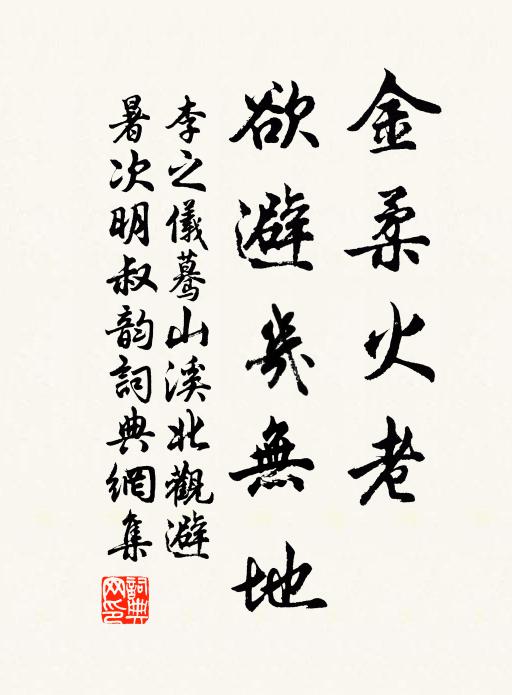 金柔火老
欲避幾無地
李之儀驀山溪北觀避
暑次明叔韵詞典網集
詞典網印